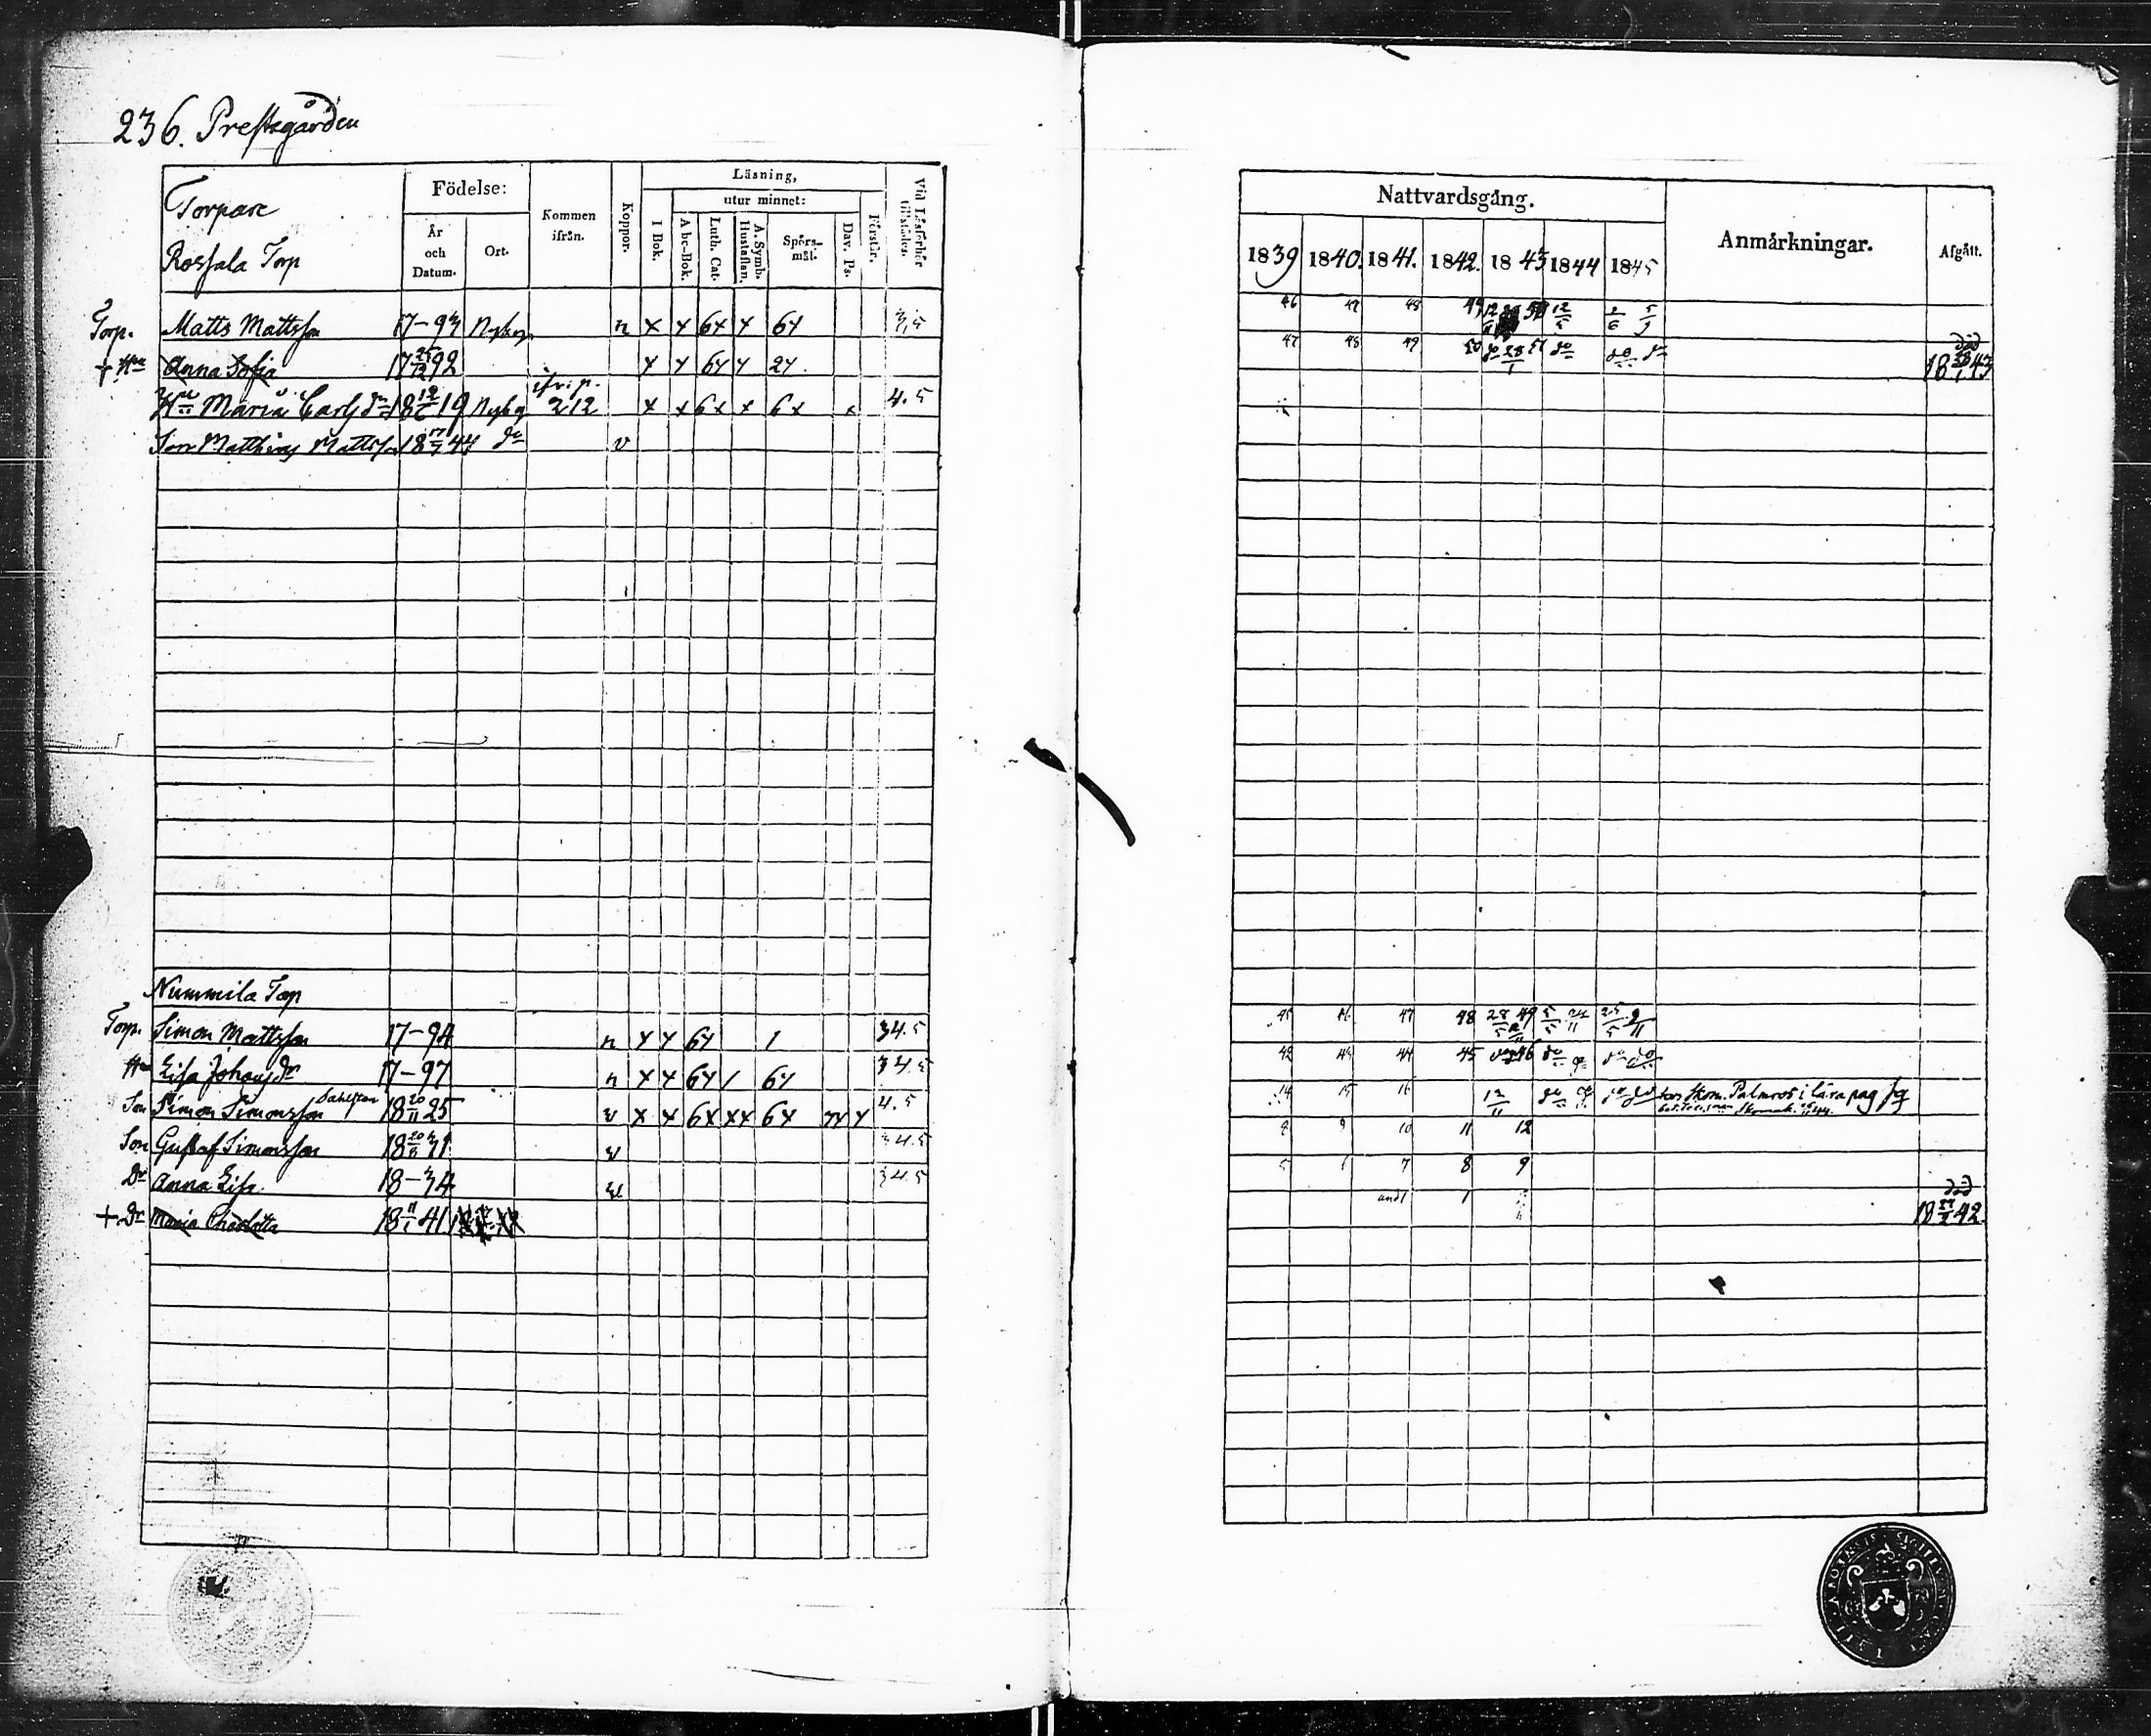 236. Prestegården
Torpare
Rossala Torp
Födelse:
År
och
Datum.
Ort.
Kommen
ifrån.
Koppor.
Läsning,
I Bok.
utur minnet:
A be-Bok.
Luth. Cat.
A. Symb.
Hustaflan.
Spörs-
mål.
Dav. Ps.
Förstår.
Vid Läsförhör
tillstädes.
Torp. Matts Mattsson 17-93 Nykyr n x x 6x x 6x 3,5
+ Hu Anna Sofia 17 25/12 92 x x 6x x 2x
Hu Maria Carlsdr 18 12/6 19 Nykg ifr. p. 212 x x 6x x 6x x 4.5
Son Matthias Mattsson 18 17/9 44 do v
Nummila Torp
Torp. Simon Mattsson 17-94 n x x 6x 1 34.5
Hu Lisa Johansdr 17-97 n x x 6x / 6x 34.5
Son Simon Simonsson Dahlsten 18 20/11 25 v x x 6x x x 6x 7x x 4.5
Son Gustaf Simonsson 18 20/8 31 v 34.5
Dr Anna Lisa 18-34 v 34.5
+ Dr Maria Charlotta 18 11/1 41
Nattvardsgång.
Anmärkningar.
Afgått.
1839 1840. 1841. 1842. 1843 1844 1845
46 47 48 49 12/5 2/6 5/9
47 48 49 50 28/1 51 do do do död
18 28/1 43
45 46 47 48 28/5 49 5/5 24/11 25/5 9/11
42 43 44 45 46 do do do do
14 15 16 12/11 do do do do hos Skom. Palmros i lära pag
8 9 10 11 12
5 6 7 8 9
und 1 1 död
18 27/2 42.